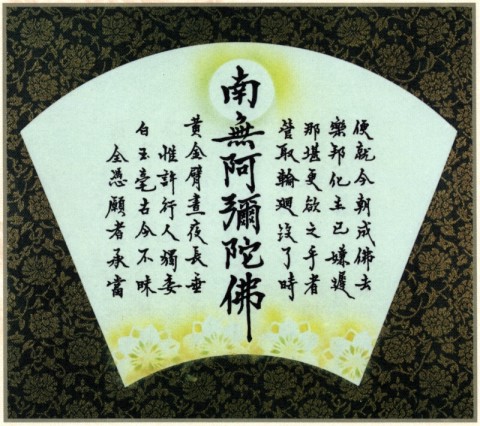 便就今朝成佛去
樂邦化主已嫌遲
那堪更欲之乎者
管取輪迴沒了時
南無阿彌陀佛
黃金臂晝夜長垂
惟許行人獨委
白玉毫古今不昧
全憑願者承當